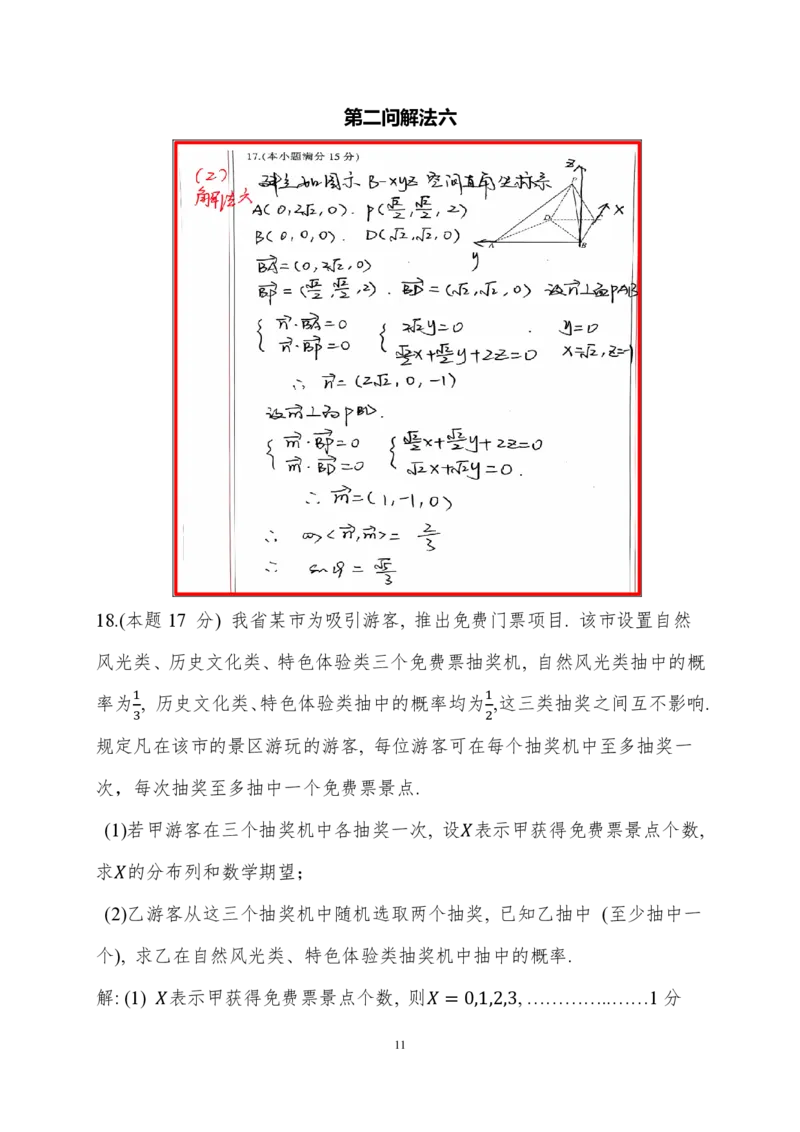 第二问解法六
17.(本小题满分 15 分)
(2)
解法六
建立如图示 B-xyz 空间直角坐标系
A(0,2√2,0). P(√2/2,√2/2,2)
B(0,0,0). D(√2,√2,0)
BA=(0,2√2,0)
BP=(√2/2,√2/2,2). BD=(√2,√2,0) 设n⊥面PAB
{ n·BA=0 { 2√2y=0 . y=0
n·BP=0 √2/2x+√2/2y+2z=0 x=√2,z=-1
∴ n=(2√2,0,-1)
设m⊥面PBD.
{ m·BP=0 { √2/2x+√2/2y+2z=0
m·BD=0 √2x+√2y=0.
∴ m=(1,-1,0)
∴ cos<n,m>= 2/3
∴ sinθ= √5/3
Z
X
D
A
B
y
18.(本题 17 分) 我省某市为吸引游客, 推出免费门票项目. 该市设置自然
风光类、历史文化类、特色体验类三个免费票抽奖机, 自然风光类抽中的概
率为1/3, 历史文化类、特色体验类抽中的概率均为1/2,这三类抽奖之间互不影响.
规定凡在该市的景区游玩的游客, 每位游客可在每个抽奖机中至多抽奖一
次，每次抽奖至多抽中一个免费票景点.
(1)若甲游客在三个抽奖机中各抽奖一次, 设X表示甲获得免费票景点个数,
求X的分布列和数学期望；
(2)乙游客从这三个抽奖机中随机选取两个抽奖, 已知乙抽中 (至少抽中一
个), 求乙在自然风光类、特色体验类抽奖机中抽中的概率.
解: (1) X表示甲获得免费票景点个数, 则X = 0,1,2,3, ………………1 分
11